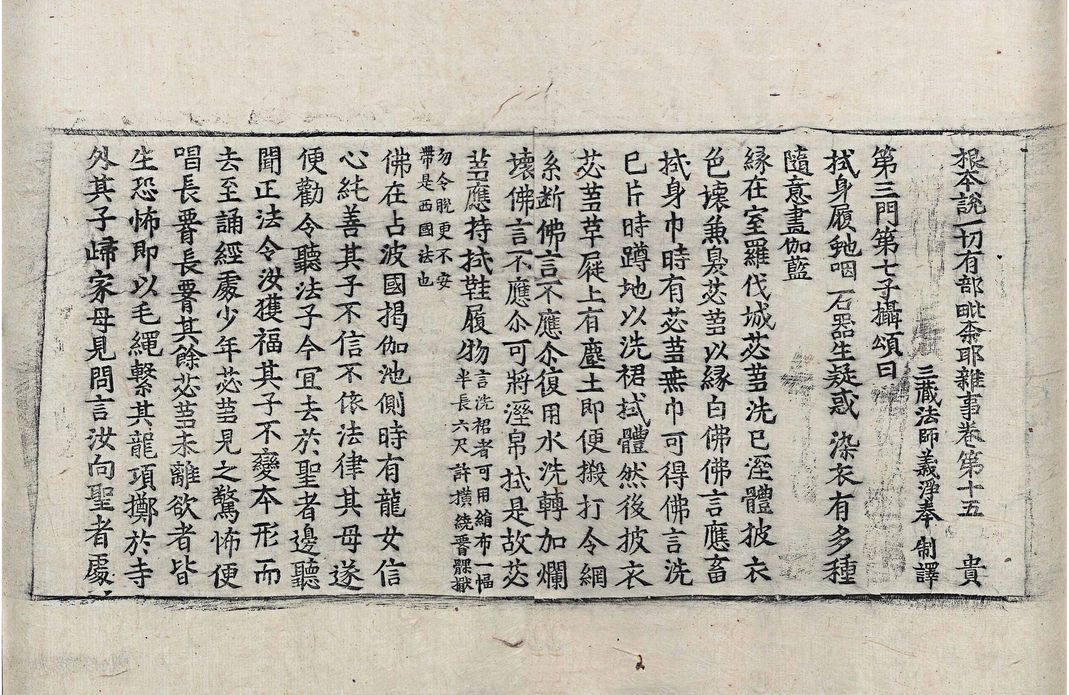 根本說一切有部毗奈耶雜事卷第十五 貴
三藏法師義淨奉 制譯
第三門第七子攝頌曰
拭身履虵咽 石器生疑惑 染衣有多種
隨意畫伽藍
緣在室羅伐城苾芻洗已溼體披衣
色壞兼臭苾芻以緣白佛佛言應畜
拭身巾時有苾芻無巾可得佛言洗
已片時蹲地以洗裙拭體然後披衣
苾芻草屣上有塵土即便搬打令網
糸断佛言不應尒復用水洗轉加爛
壞佛言不應尒可將溼帛拭是故苾
芻應持拭鞋履物言洗裙者可用絹布一幅
少半長六尺許撗繞罾髁掀
勿令脫更不安
帶是西國法也
佛在占波國揭伽池側時有龍女信
心純善其子不信不依法律其母遂
便勸令聽法子今冝去於聖者邊聽
聞正法令汝獲福其子不變本形而
去至誦經處少年苾芻見之驚怖便
唱長罾長罾其餘苾芻未離欲者皆
生恐怖即以毛繩繫其龍項擲於寺
外其子歸家母見問言汝向聖者處